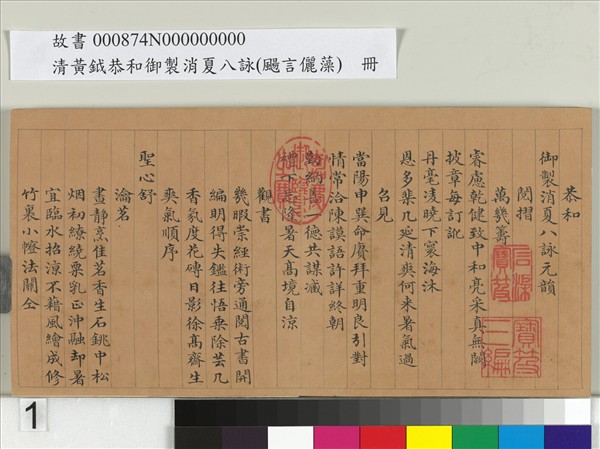 故書 000874N000000000
清黃鉞恭和御製消夏八詠(颺言儷藻) 冊
恭和
御製消夏八詠元韻
閱摺
萬幾籌
睿慮乾健致中和亮采真無闕
披章每訂訛
丹毫凌曉下寰海沐
恩多棐几延清爽何來暑氣過
召見
當陽申巽命賡拜重明良引對
情常洽陳謨語許詳終朝
勤納誨一德共謀臧
禮下 降暑天高境自涼
觀書
幾暇崇經術旁通閱古書開
編明得失鑑往悟乘除芸几
香氛度花磚日影徐高齋生
爽氣順序
聖心舒
瀹茗
晝靜烹佳茗香生石銚中松
烟初繚繞粟乳正沖融却暑
宜臨水招涼不藉風繪成修
竹裏小幢法關仝
石渠寶笈
寶笈三編
1